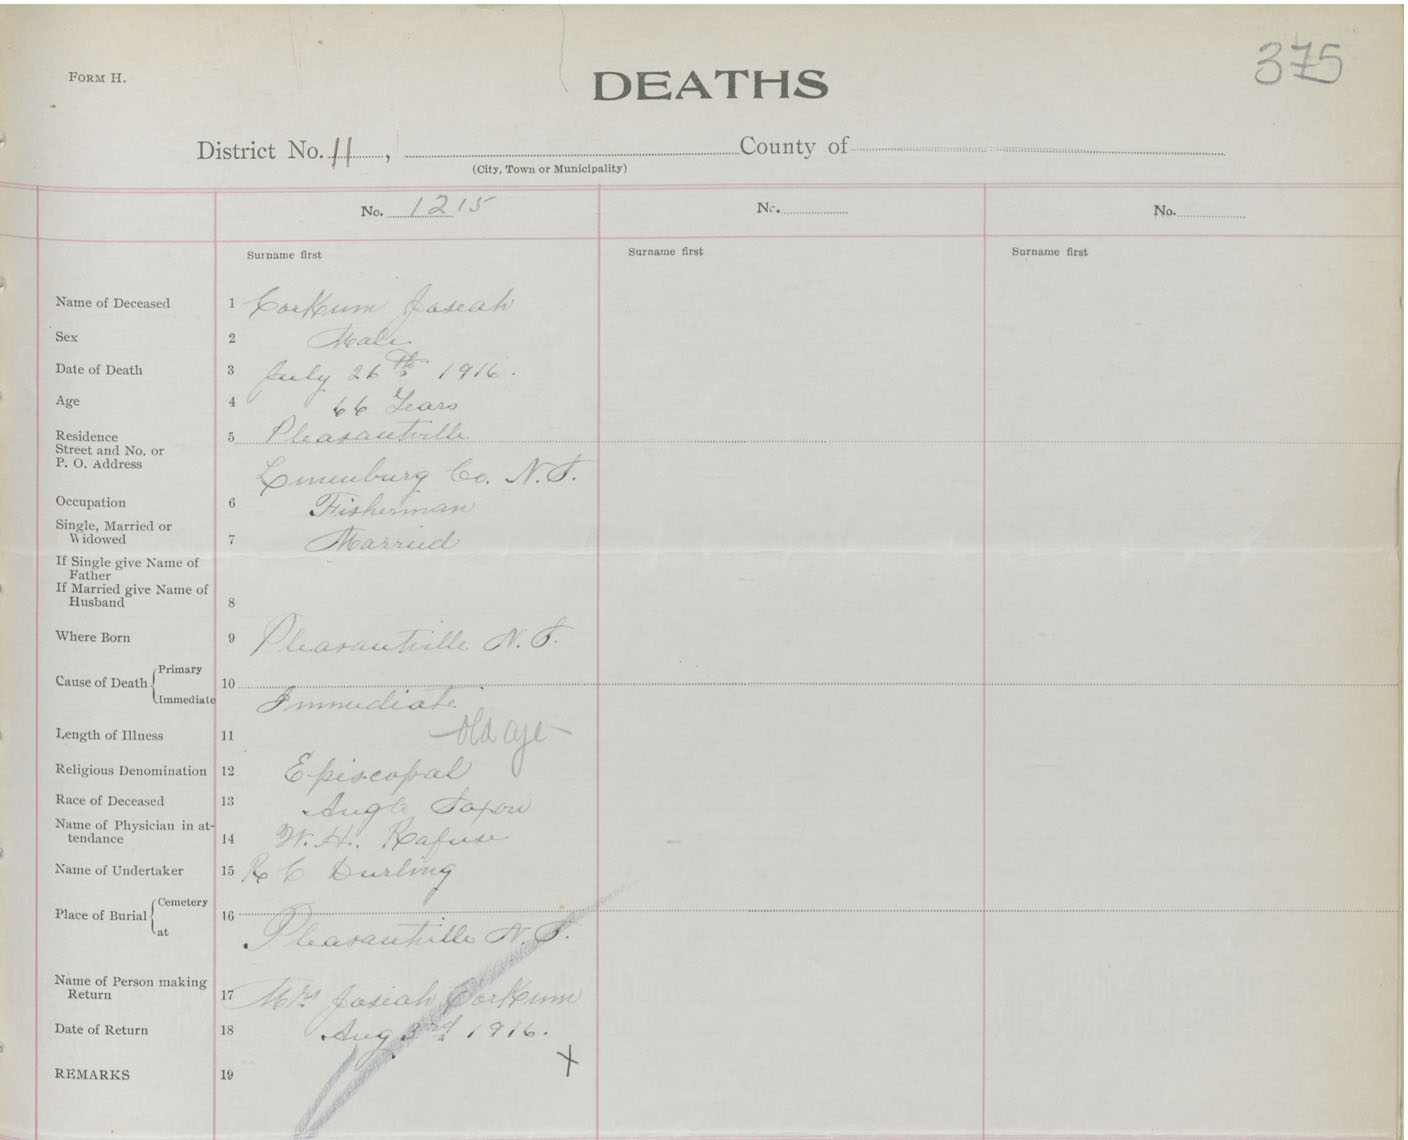 FORM H.
DEATHS
375
District No. 11, County of
(City, Town or Municipality)
No. 1215
No.
No.
Surname first
Surname first
Surname first
Name of Deceased 1 Corkum Joseah
Sex 2 Male
Date of Death 3 July 26th 1916.
Age 4 66 Years
Residence 5 Pleasantville
Street and No. or
P. O. Address
Lunenburg Co. N.S.
Occupation 6 Fisherman
Single, Married or
Widowed 7 Married
If Single give Name of
Father
If Married give Name of
Husband 8
Where Born 9 Pleasantville N.S.
Cause of Death Primary 10
Immediate Immediate
old age
Length of Illness 11
Religious Denomination 12 Episcopal
Race of Deceased 13 Anglo Saxon
Name of Physician in at-
tendance 14 W. H. Rafuse
Name of Undertaker 15 R C Durling
Place of Burial Cemetery 16
at Pleasantville N.S.
Name of Person making
Return 17 Mrs Josiah Corkum
Date of Return 18 Aug 3rd 1916.
REMARKS 19
X